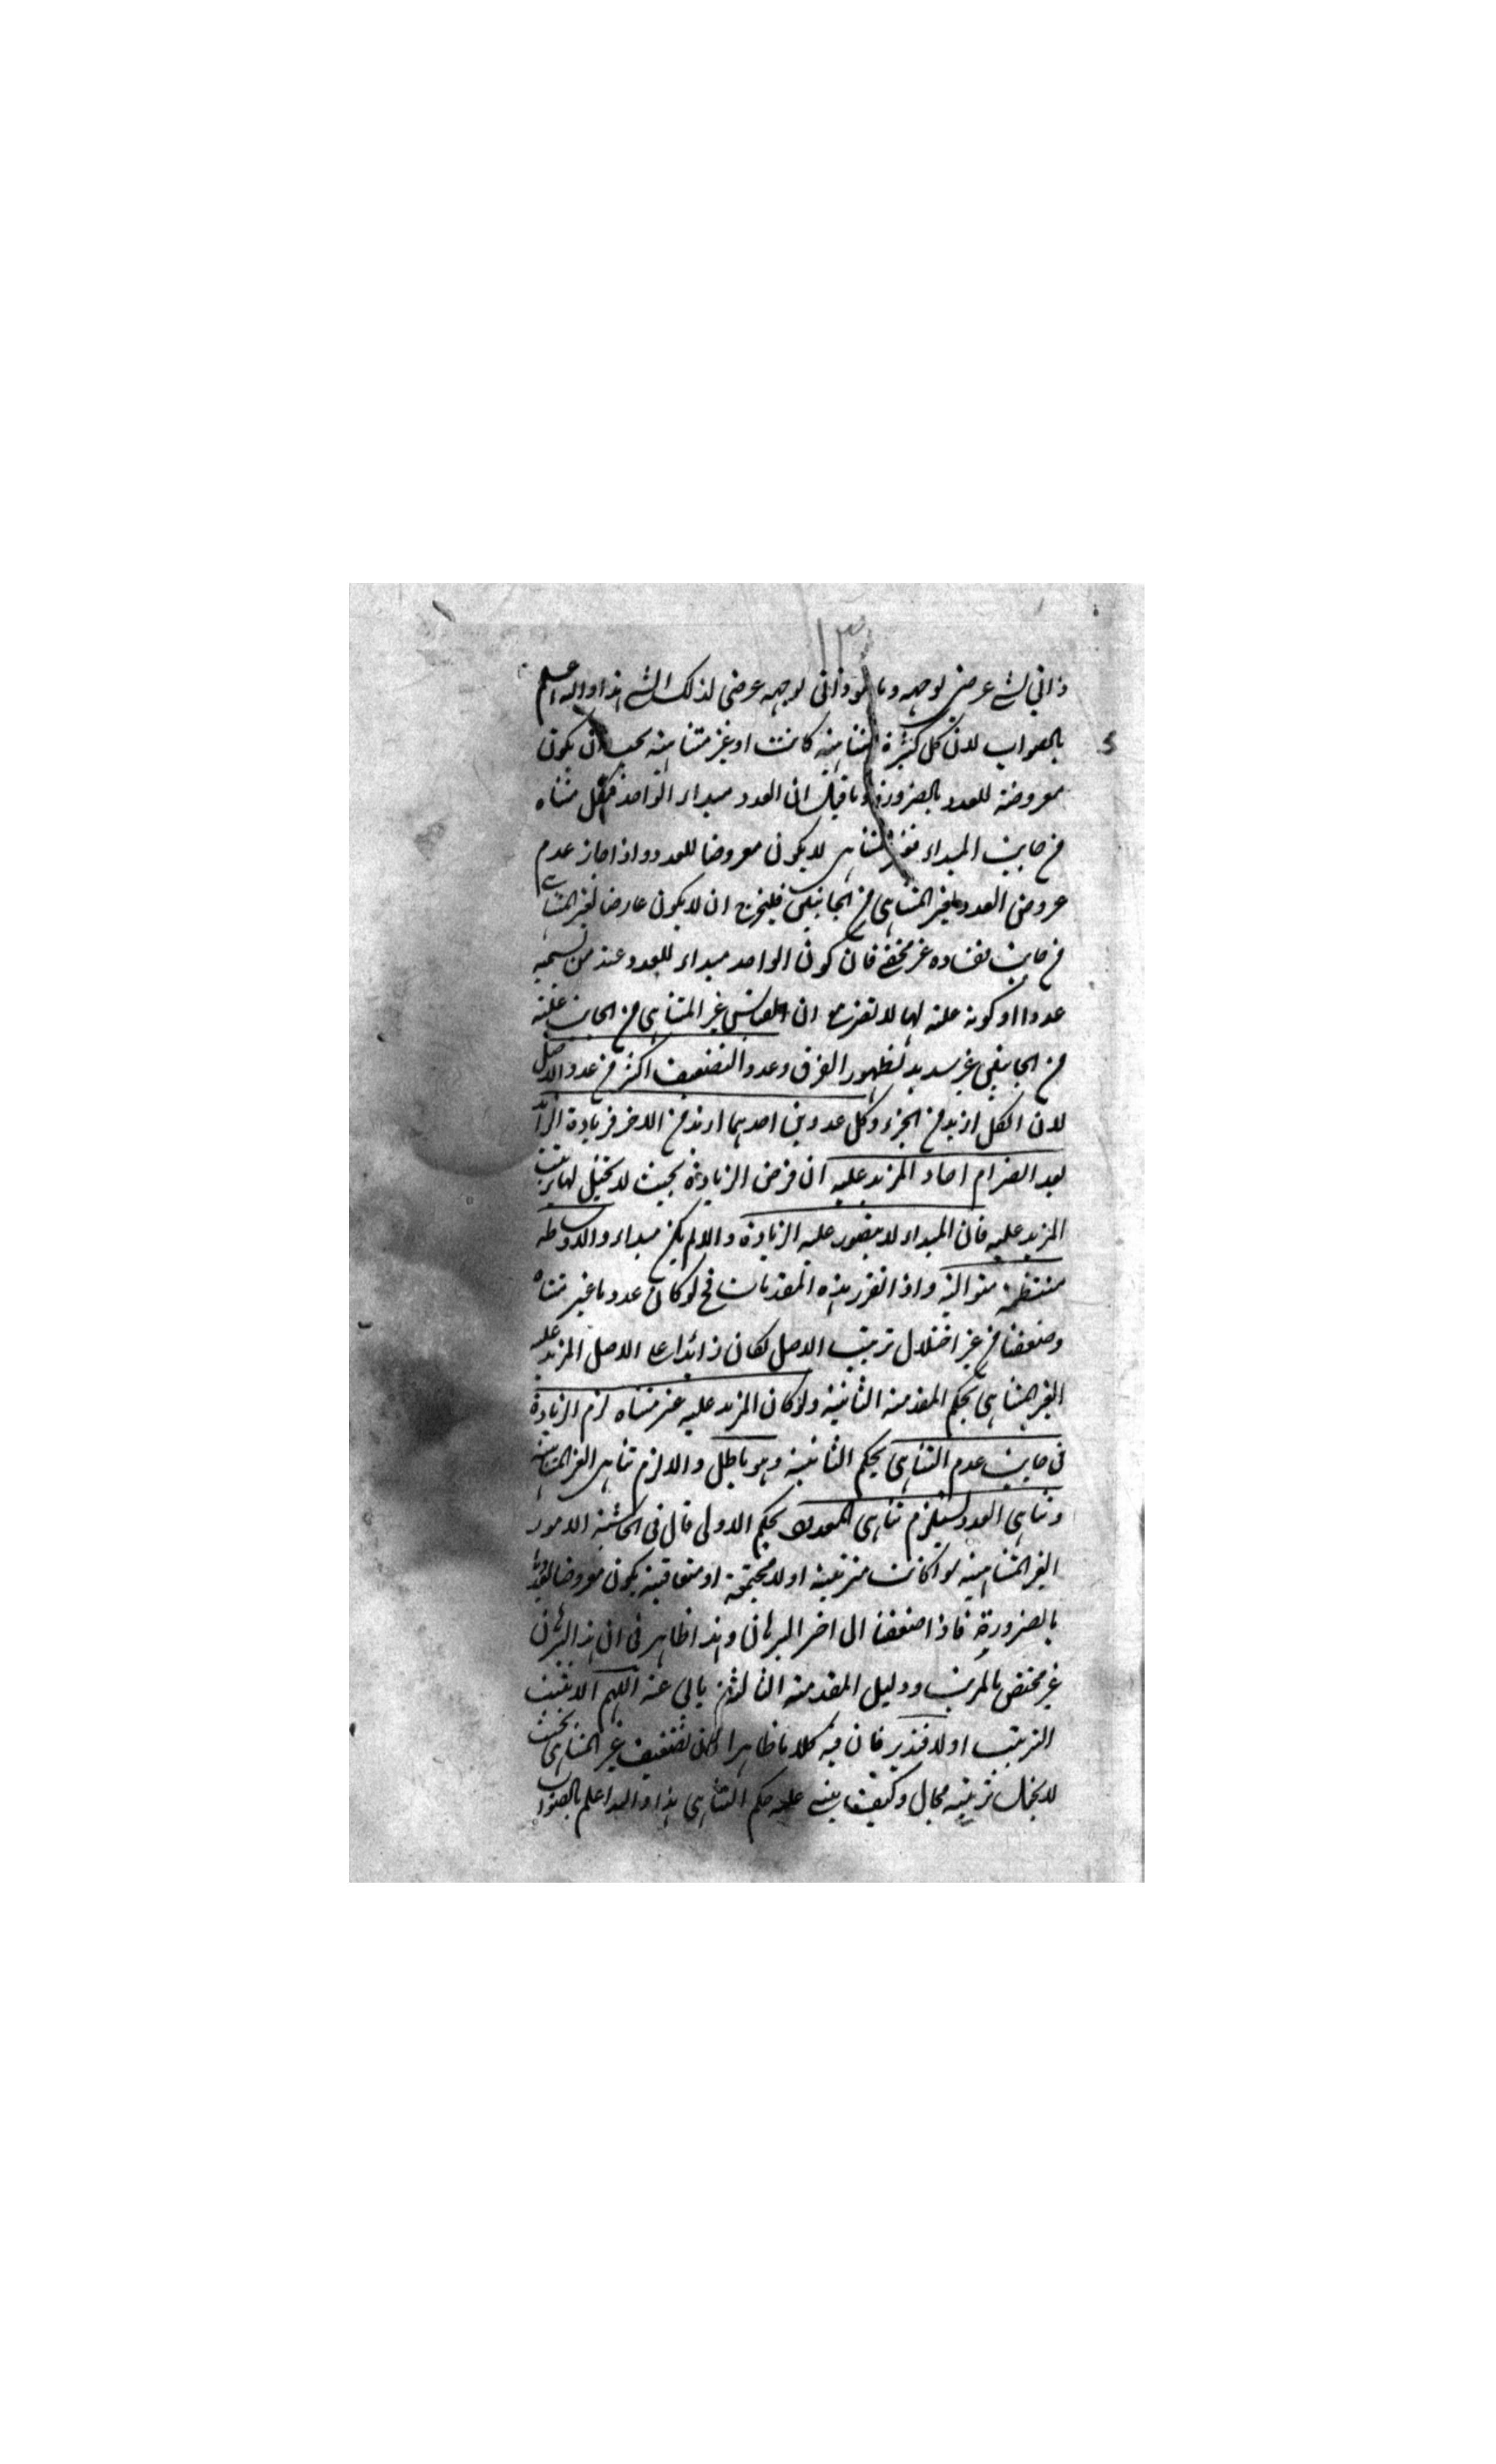 ١٣
ذاتي لشي عرضي لوجهه وما هو ذاتي لوجهه عرضي لذلك الشي هذا والله اعلم
بالصواب لان كل كثرة متناهية كانت او غير متناهية يجب ان يكون
معروضة للعدد بالضرورة وما قيل ان العدد مبداء الواحد فكل متناه
من جانب المبداء فغير المتناهي لا يكون معروضا للعدد واذا جاز عدم
عروض العدد لغير المتناهي من الجانبين فليجز ان لا يكون عارضا لغير المتناهي
من جانب ففساده غير مخفي فان كون الواحد مبداء للعدد عند من يسميه
عددا او كونه علته لها لا تعرض ان القياس غير المتناهي من الجانب عليه
من الجانبين غير سديد لظهور الفرق وعدد التضعيف اكثر من عدد الاصل
لان الكل ازيد من الجزء وكل عددين احدهما ازيد من الاخر فزيادة الزائد
بعد انصرام احاد المزيد عليه ان فرض الزيادة بحيث لا يختل لها ترتيب
المزيد عليه فان المبداء لا يتصور عليه الزيادة والا لم يكن مبداء والاوساطه
منتظمة متوالية واذا تقرر هذه المقدمات فح لو كان عدد ما غير متناه
وضعفنا من غير اختلال ترتيب الاصل لكان زائدا على الاصل المزيد عليه
الغير المتناهي بحكم المقدمة الثانية ولو كان المزيد عليه غير متناه لزم الزيادة
في جانب عدم التناهي بحكم الثانية وهو باطل والا لزم تناهي الغير المتناهية
وتناهي العدد يستلزم تناهي المعدود بحكم الاولى قال في الحاشية الامور
الغير المتناهية سواء كانت مترتبة او لا مجتمعة او متعاقبة يكون معروضا للعدد
بالضرورة فاذا ضعفنا الى اخر البرهان وهذا ظاهر في ان هذا البرهان
غير مختص بالمرتب ودليل المقدمة الثالثة يابى عنه اللهم الا يثبت
الترتيب اولا فتدبر فان فيه كلاما ظاهرا لان تضعيف غير المتناهي بحيث
لا يختل ترتيبه محال وكيف يبنى عليه حكم التناهي هذا والله اعلم بالصواب